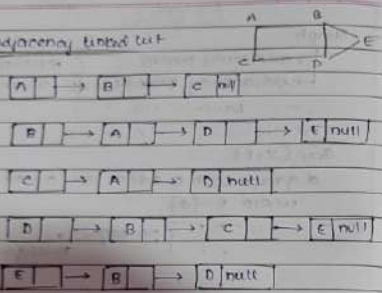 A B
adjacency linked list
E
C D
A → B → C null
B → A → D → E null
C → A → D null
D → B → C → E null
E → B → D null